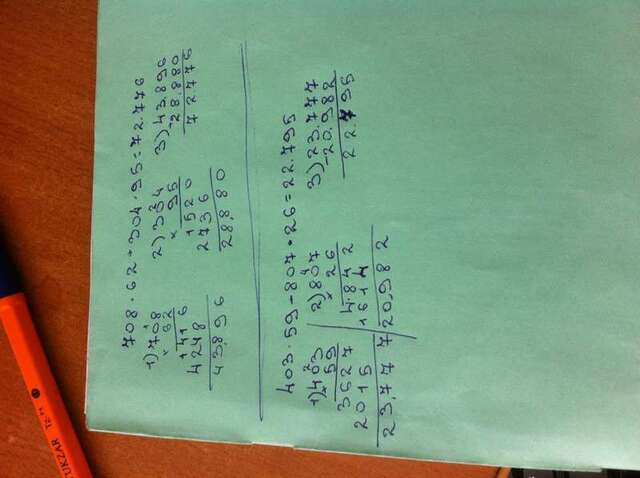 TUKZAR
708 · 62 + 304 · 95 = 72.776
1) 708
× 62
1416
4248
43,896
2) 304
× 95
1520
2736
28,880
3) 43.896
28.880
72776
403 · 59 - 807 · 26 = 22.795
1) 403
× 59
3627
2015
23,777
2) 807
× 26
4.842
1614
20,982
3) 23.777
-20.982
22.795